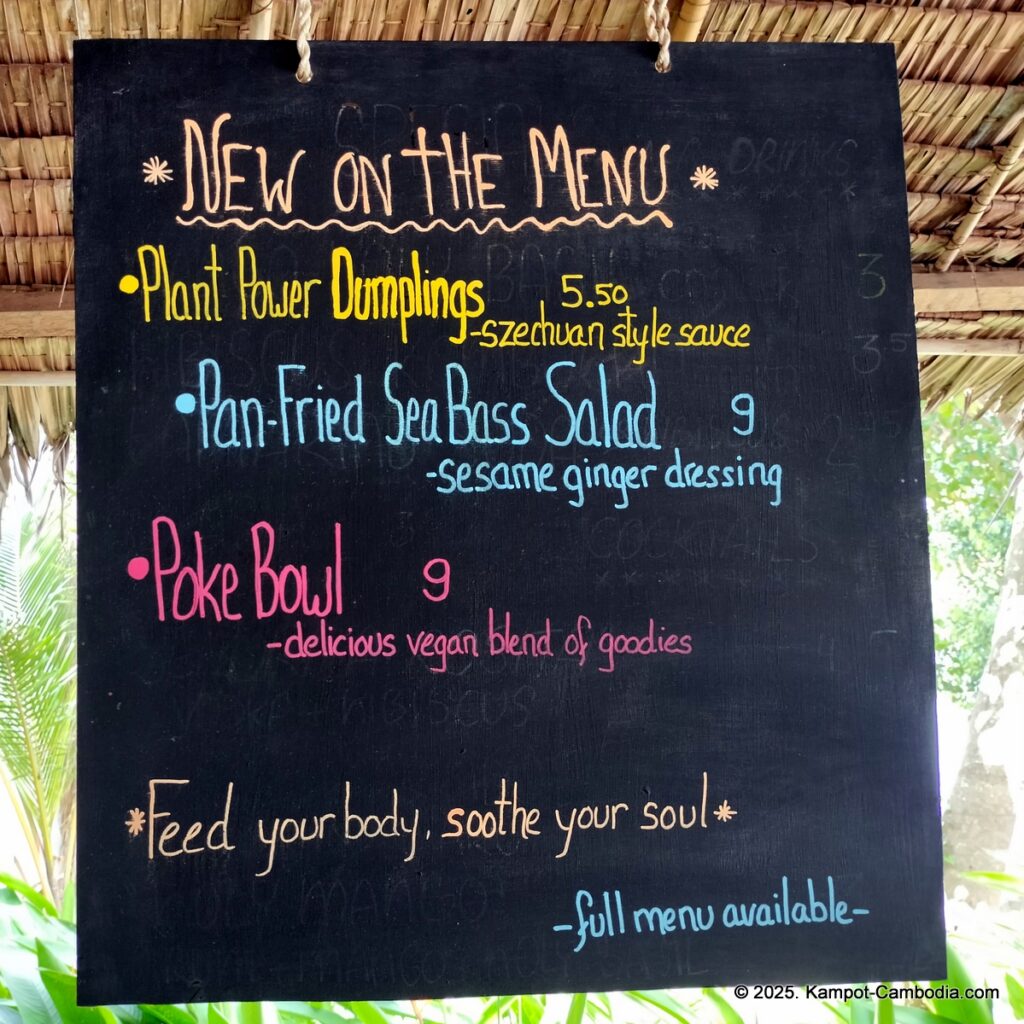 * NEW ON THE MENU *
• Plant Power Dumplings 5.50
-szechuan style sauce
• Pan-Fried Sea Bass Salad 9
-sesame ginger dressing
• Poke Bowl 9
-delicious vegan blend of goodies
*Feed your body, soothe your soul*
-full menu available-
DRINKS
3
3.5
COCKTAILS
HIBISCUS
MANGO
© 2025. Kampot-Cambodia.com